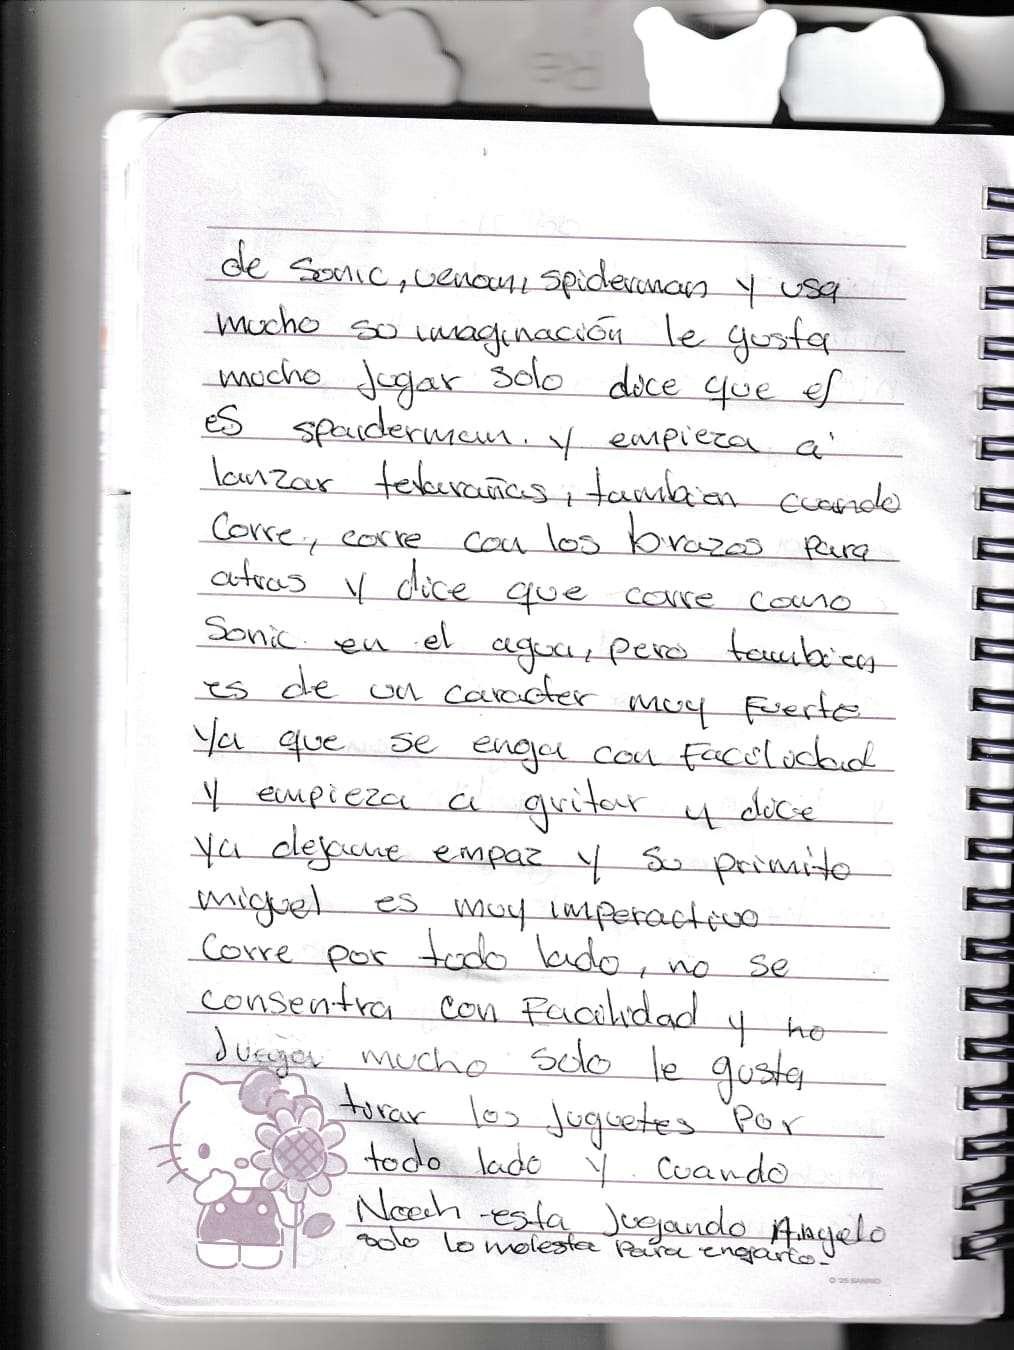 de Sonic, venom, spiderman y usa
mucho so imaginación le gusta
mucho jugar solo dice que el
es spaiderman. y empieza a
lanzar telarañas, tambien cuando
Corre, corre con los brazos para
atras y dice que corre como
Sonic en el agua, pero tambien
es de un caracter muy Fuerte
Ya que se enga con Facilidad
y empieza a gritar y dice
Ya dejame empaz y so primito
miguel es muy imperactivo
Corre por todo lado, no se
consentra con Facilidad y no
Juega mucho solo le gusta
tirar los juguetes por
todo lado y cuando
esta Jugando Angelo
solo lo molesta para engarlo.
© '25 SANRIO